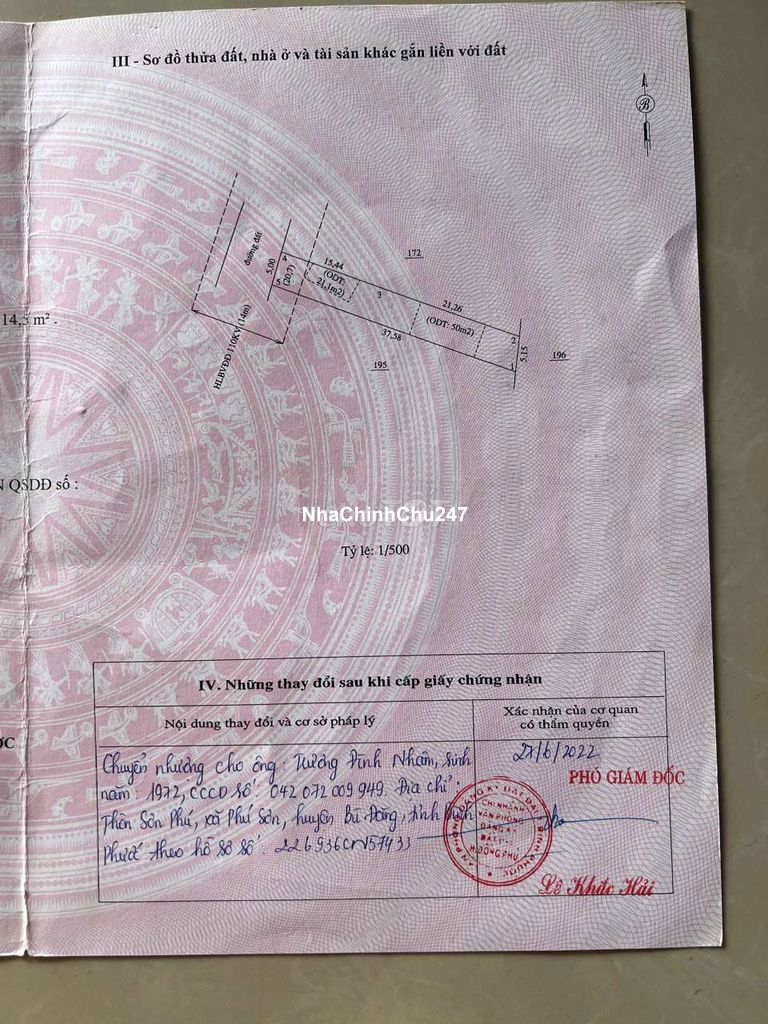 III - Sơ đồ thửa đất, nhà ở và tài sản khác gắn liền với đất
B
172
đường đất
5,00
4
5
(20,7)
15,44
(ODT:
21,1m2)
3
21,26
(ODT: 50m2)
2
1
5,15
37,58
HLBVĐĐ 110KV (14m)
196
195
14,5 m² .
N QSDĐ số :
NhaChinhChu247
Tỷ lệ: 1/500
IV. Những thay đổi sau khi cấp giấy chứng nhận
Nội dung thay đổi và cơ sở pháp lý
Xác nhận của cơ quan
có thẩm quyền
Chuyển nhượng cho ông: Tương Đình Nhâm, sinh
năm: 1972, CCCD số: 042 072 009 949. Địa chỉ:
Thôn Sơn Phú, xã Phú Sơn, huyện Bù Đăng, tỉnh Bình
Phước theo hồ sơ số: 226936CN57433
27/6/2022
PHÓ GIÁM ĐỐC
VĂN PHÒNG ĐĂNG KÝ ĐẤT ĐAI BÌNH PHƯỚC
CHI NHÁNH
VĂN PHÒNG
ĐĂNG KÝ
ĐẤT ĐAI
H.ĐỒNG PHÚ
Lê Khắc Hải